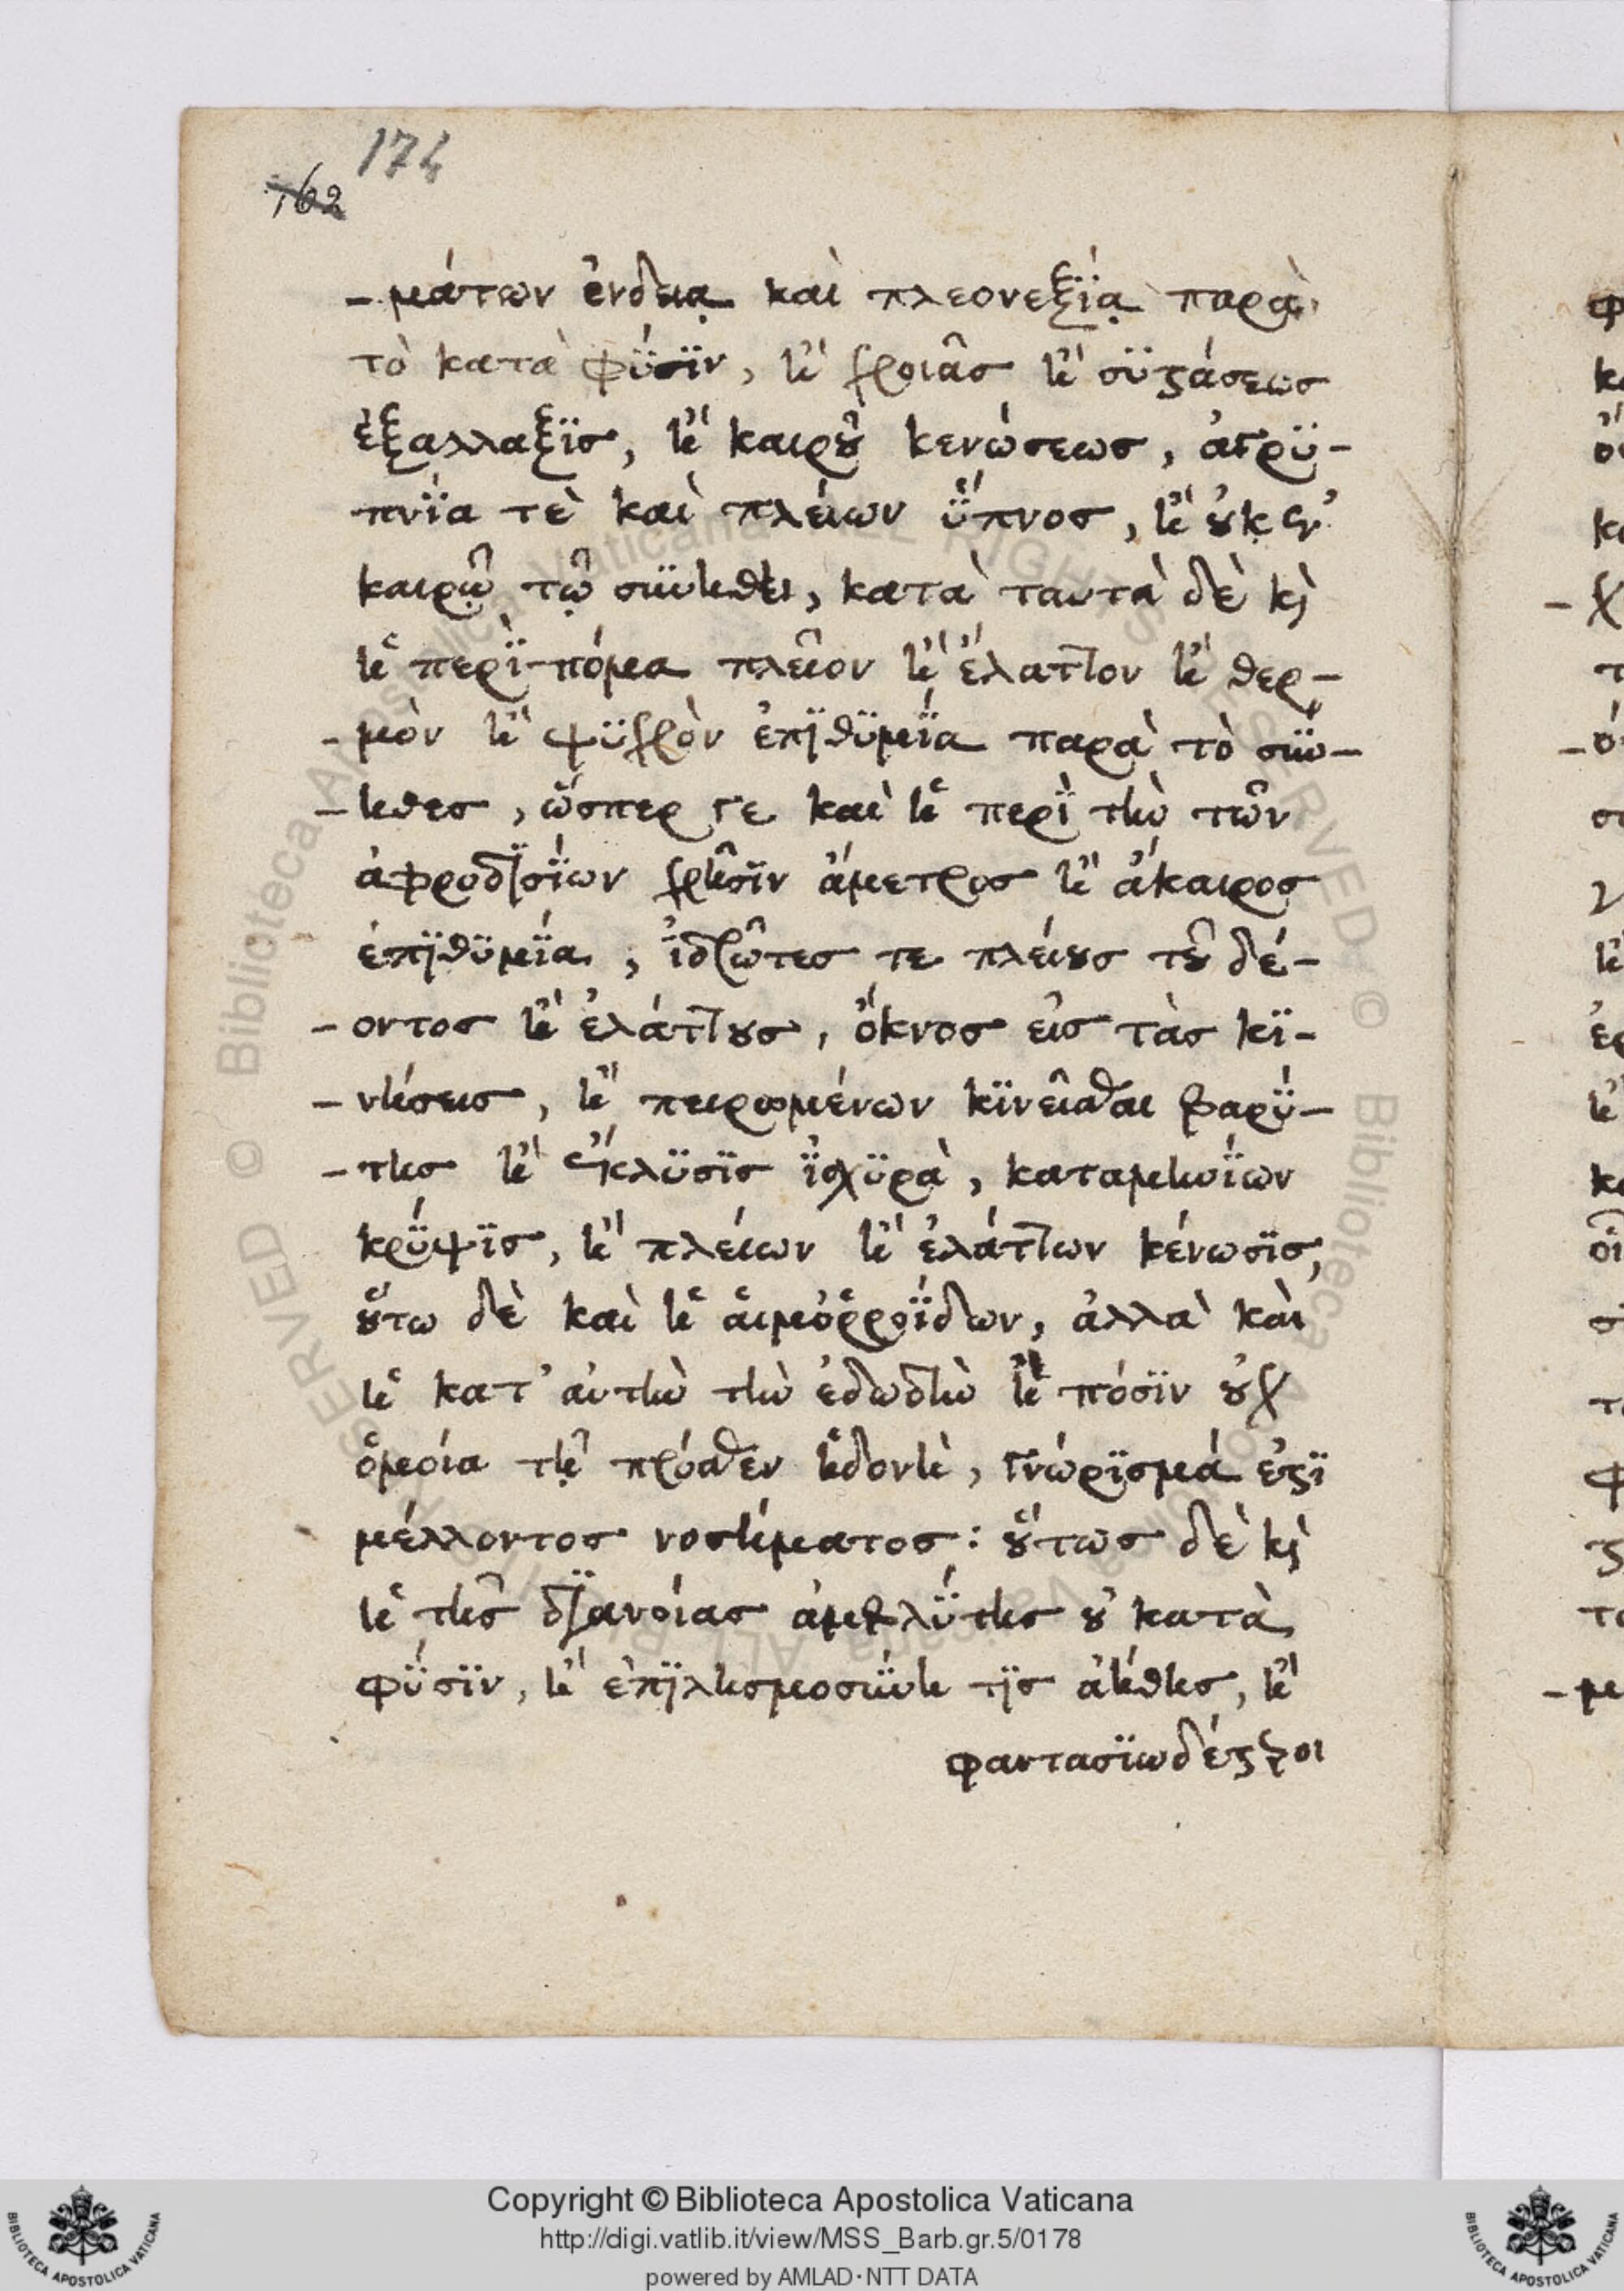 174
162
-μάτων ἐνδεια καὶ πλεονεξΐᾳ παρὰ
τὸ κατὰ φϋσϊν, ἢ χροιᾶσ ἢ σϋϛάσεωσ
ἐξαλλαξϊσ, ἢ καιρȣ͂ κενώσεωσ, ἀγρϋ-
πνΐα τὲ καὶ πλείων ὕπνοσ, ἢ ȣ̓κ ἐν
καιρῷ τῷ συνήθει, κατὰ ταυτὰ δὲ κ̀
ἡ περὶ πόμα πλεῖον ἢ ἔλαττον ἢ θερ-
-μὸν ἢ ψϋχρὸν ἐπϊθϋμΐα παρὰ τὸ συν-
-ηθεσ, ὥσπερ γε καὶ ἡ περὶ τὴν τῶν
ἀφροδϊσΐων χρῆσϊν ἄμετροσ ἢ ἄκαιροσ
ἐπϊθϋμΐα, ἱδρῶτεσ τε πλείȣσ τȣ͂ δέ-
-οντοσ ἢ ἐλάττȣσ, ὄκνοσ εἰσ τὰσ κϊ-
-νήσεισ, ἢ πειρωμένων κϊνεῖσθαι βαρΰ-
-τησ ἢ ἔκλϋσϊσ ἰσχϋρὰ, καταμηνΐων
κρΰψϊσ, ἢ πλείων ἢ ἐλάττων κένωσϊσ,
ȣ̔́τω δὲ καὶ ἡ αἱμοῤῥοΐδων, ἀλλὰ καὶ
ἡ κατ' αὐτὴν τὴν ἐδωδὴν ἢ πόσϊν ȣ̓χ
ὁμοία τῇ πρόσθεν ἡδονὴ, γνώρϊσμά ἐϛϊ
μέλλοντοσ νοσήματοσ: ȣ̔́τωσ δὲ κ̀
ἡ τῆσ δϊανοίασ ἀμβλΰτησ ȣ̓ κατὰ
φΰσϊν, ἢ ἐπϊλησμοσύνη τϊσ ἀήθησ, ἢ
φαντασϊωδέϛεροι
Copyright © Biblioteca Apostolica Vaticana
http://digi.vatlib.it/view/MSS_Barb.gr.5/0178
powered by AMLAD·NTT DATA